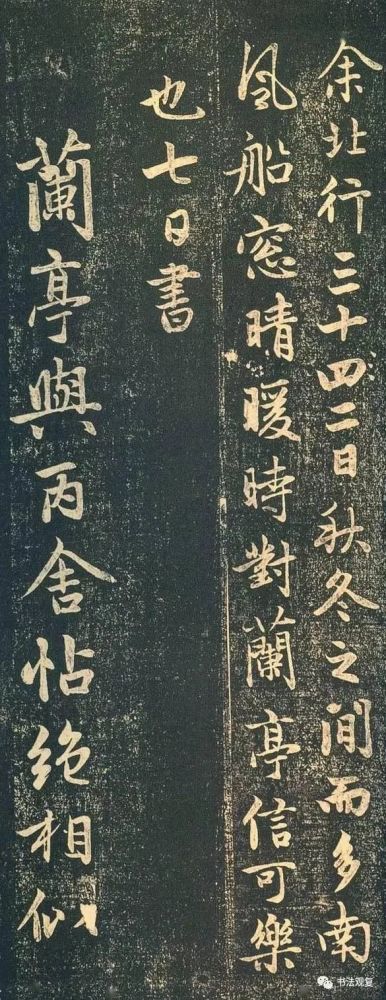 余北行三十四二日秋冬之間而多南
風船窓晴暖時對蘭亭信可樂
也七日書
蘭亭與丙舍帖絶相似
书法观复